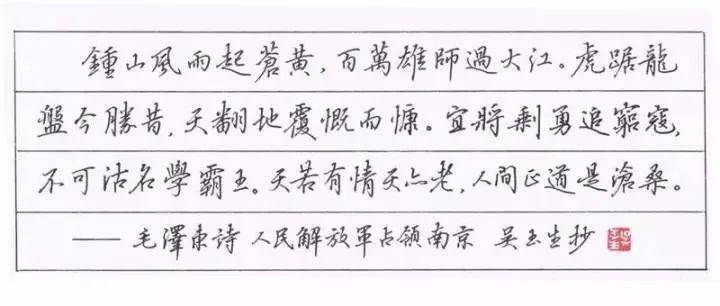 鍾山風雨起蒼黃，百萬雄師過大江。虎踞龍
盤今勝昔，天翻地覆慨而慷。宜將剩勇追窮寇，
不可沽名學霸王。天若有情天亦老，人間正道是滄桑。
—— 毛澤東詩 人民解放軍占領南京 吴玉生抄